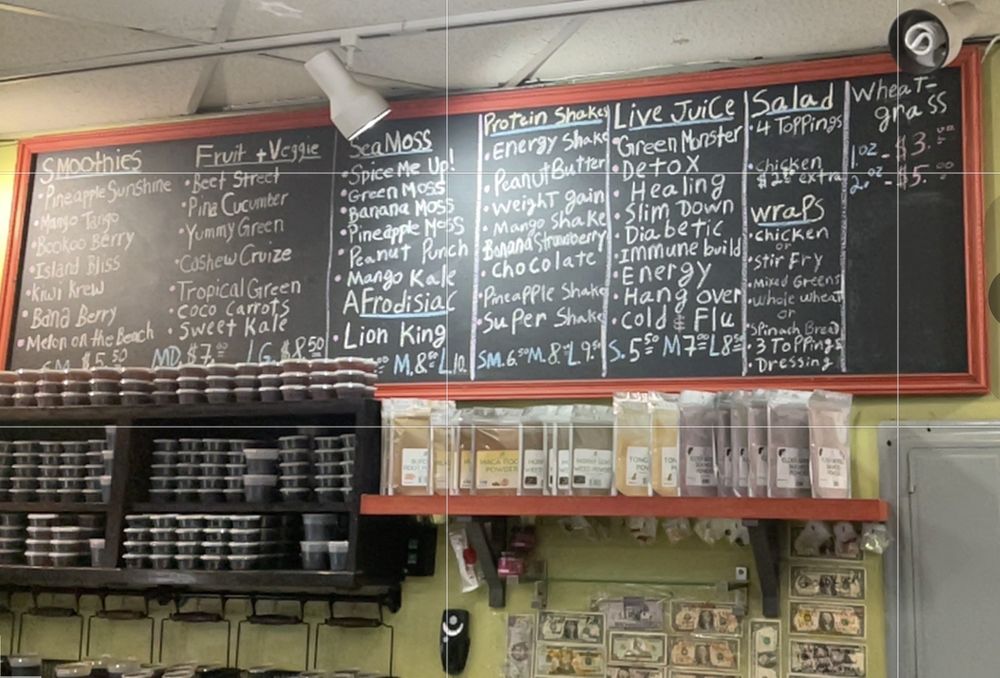 SMOOTHIES
•Pineapple Sunshine
•Mango Tango
•Bookoo Berry
•Island Bliss
•Kiwi Krew
•Bana Berry
•Melon on the Beach
Fruit + Veggie
•Beet Street
•Pina Cucumber
•Yummy Green
•Cashew Cruize
•Tropical Green
•Coco Carrots
•Sweet Kale
SM. $5.50 MD. $7.00 LG. $8.50
Sea Moss
•Spice Me Up!
•Green Moss
•Banana Moss
•Pineapple Moss
•Peanut Punch
•Mango Kale
AFrodisiac
•Lion King
M.8.00 L.10.
Protein Shakes
•Energy Shake
•Peanut Butter
•Weight gain
•Mango Shake
•Banana Strawberry
•Chocolate
•Pineapple Shake
•Super Shake
SM.6.50 M.8.00 L9.50
Live Juice
•Green Monster
•Detox
•Healing
•Slim Down
•Diabetic
•Immune build
•Energy
•Hang over
•Cold & Flu
S.5.50 M7.00 L8.50
Salad
•4 Toppings
•chicken
$2.00 extra
wraps
•chicken
or
•Stir Fry
•Mixed Greens
•Whole wheat
or
•Spinach Bread
•3 Toppings
•Dressing
Wheat-
grass
1.oz - $3.00
2.oz - $5.00
MACA ROOT
POWDER